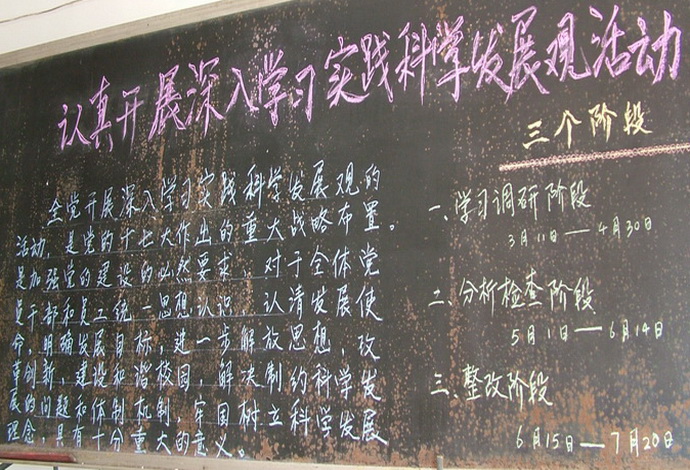 认真开展深入学习实践科学发展观活动
全党开展深入学习实践科学发展观的
活动，是党的十七大作出的重大战略布置。
是加强党的建设的必然要求，对于全体党
员干部和员工统一思想认识，认清发展使
命，明确发展目标，进一步解放思想，改
革创新，建设和谐校园，解决制约科学发
展的问题和体制机制，牢固树立科学发展
理念，具有十分重大的意义。
三个阶段
一、学习调研阶段
3月11日——4月30日
二、分析检查阶段
5月1日——6月14日
三、整改阶段
6月15日——7月20日